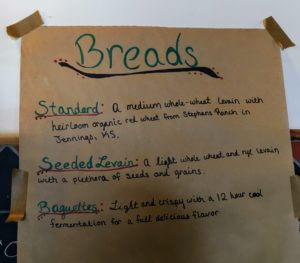 Breads
Standard: A medium whole-wheat levain with
heirloom organic red wheat from Stephens Ranch in
Jennings, KS.
Seeded Levain: A light whole wheat and rye levain
with a plethera of seeds and grains.
Baguettes: Light and crispy with a 12 hour cool
fermentation for a full delicious flavor